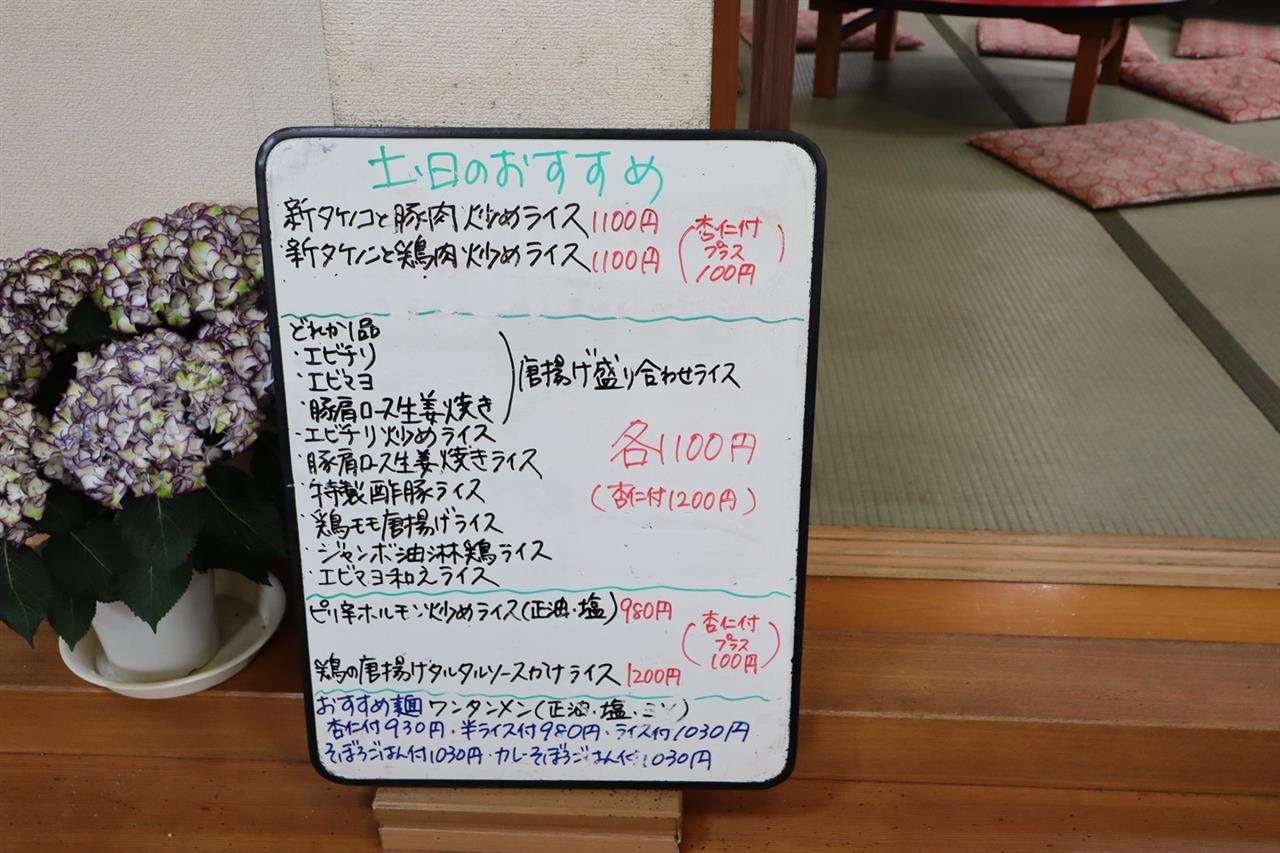 土、日のおすすめ
・新タケノコと豚肉炒めライス1100円
・新タケノコと鶏肉炒めライス1100円
(杏仁付
プラス
100円)
どれか1品
・エビチリ
・エビマヨ
・豚肩ロース生姜焼き
唐揚げ盛り合わせライス
・エビチリ炒めライス
・豚肩ロース生姜焼きライス
・特製酢豚ライス
・鶏モモ唐揚げライス
・ジャンボ油淋鶏ライス
・エビマヨ和えライス
各1100円
(杏仁付1200円)
ピリ辛ホルモン炒めライス(正油・塩)980円
鶏の唐揚げタルタルソースかけライス1200円
(杏仁付
プラス
100円)
おすすめ麺 ワンタンメン(正油・塩・ミソ)
杏仁付930円・半ライス付980円・ライス付1030円
そぼろごはん付1030円・カレーそぼろごはん付1030円